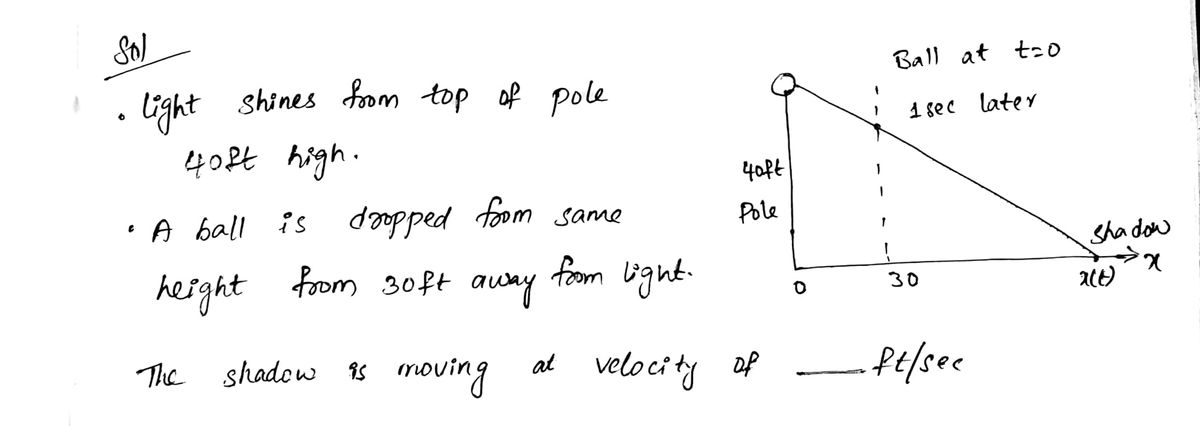 Sol
• light shines from top of pole
40ft high.
• A ball is dropped from same
height from 30ft away from light.
The shadow is moving at velocity of ___ ft/sec
Ball at t=0
1 sec later
40ft
Pole
shadow
x
0
30
x(t)